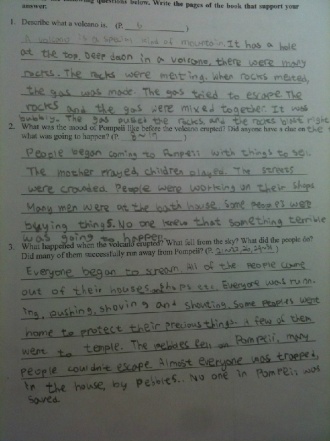 following questions below, Write the pages of the book that support your
answer.
1. Describe what a volcano is. (P. 6 )
A volcano is a special kind of mountain. It has a hole
at the top. Deep down in a volcano, there were many
rocks. The rocks were melting. When rocks melted,
the gas was made. The gas tried to escape. The
rocks and the gas were mixed together. It was
bubbly. The gas pushes the rocks and the rocks blast right
2. What was the mood of Pompeii like before the volcano erupted? Did anyone have a clue on the
what was going to happen? (P. )
People began coming to Pompeii with things to sell.
The mother children played. The streets
were crowded. People were working on their shops
Many men were at the bath house some people were
buying things. No one knew that something terrible
was going to happen.
3. What happened when the volcano erupted? What fell from the sky? What did the people do?
Did many of them successfully run away from Pompeii? (P. )
Everyone began to scream. All of the people came
out of their houses, shops etc. Everyone was runn-
ing, pushing, shoving and shouting. Some people went
home to protect their precious things. A few of them
went to temple. The pebbles fell on Pompeii, many
people couldn't escape. Almost everyone was trapped,
in the house, by pebbles.. No one in Pompeii was
saved.